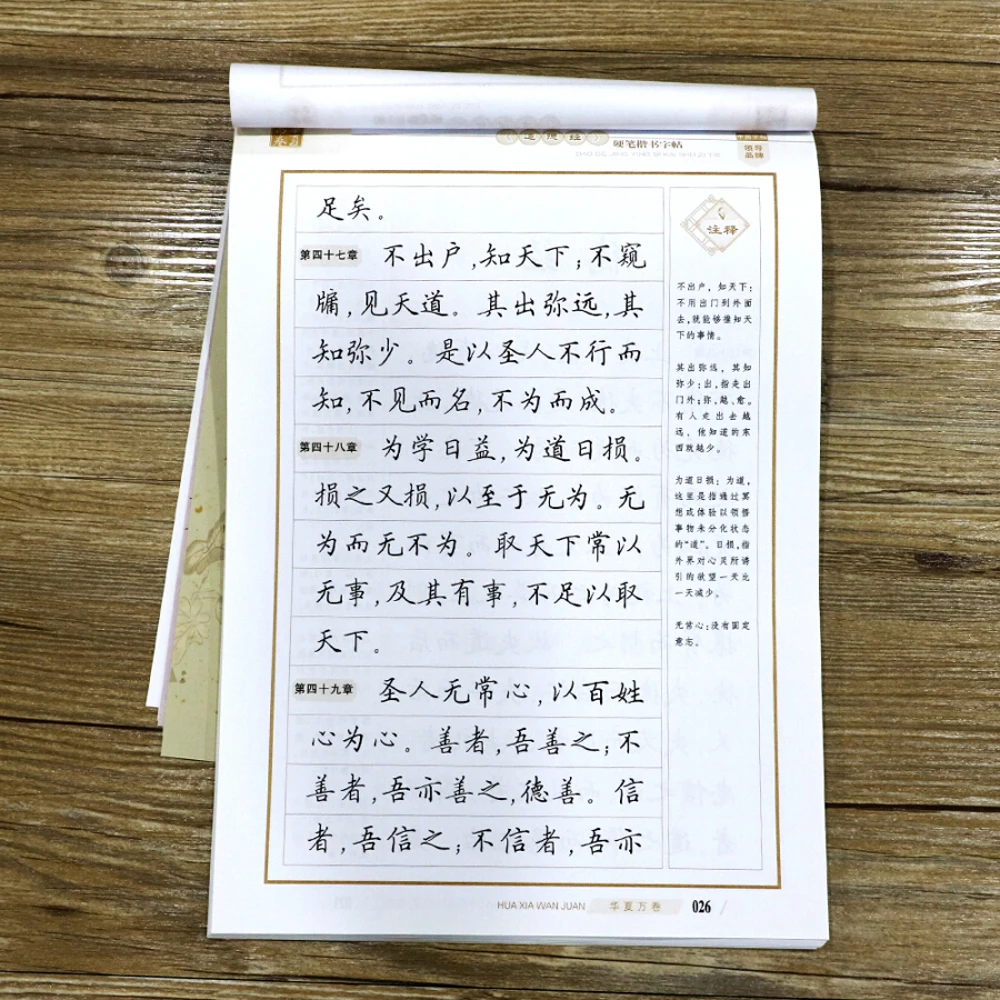 道德经
硬笔楷书字帖
领导
品牌
足矣。
第四十七章 不出户,知天下;不窥
牖,见天道。其出弥远,其
知弥少。是以圣人不行而
知,不见而名,不为而成。
第四十八章 为学日益,为道日损。
损之又损,以至于无为。无
为而无不为。取天下常以
无事,及其有事,不足以取
天下。
第四十九章 圣人无常心,以百姓
心为心。善者,吾善之;不
善者,吾亦善之,德善。信
者,吾信之;不信者,吾亦
注释
不出户,知天下:
不用出门到外面
去,就能够推知天
下的事情。
其出弥远,其知
弥少:出,指走出
门外;弥,越、愈。
有人走出去越
远,他知道的东
西就越少。
为道日损:为道,
这里是指通过冥
想或体验以领悟
事物未分化状态
的“道”。日损,指
外界对心灵所诱
引的欲望一天比
一天减少。
无常心:没有固定
意志。
HUA XIA WAN JUAN 华夏万卷 026